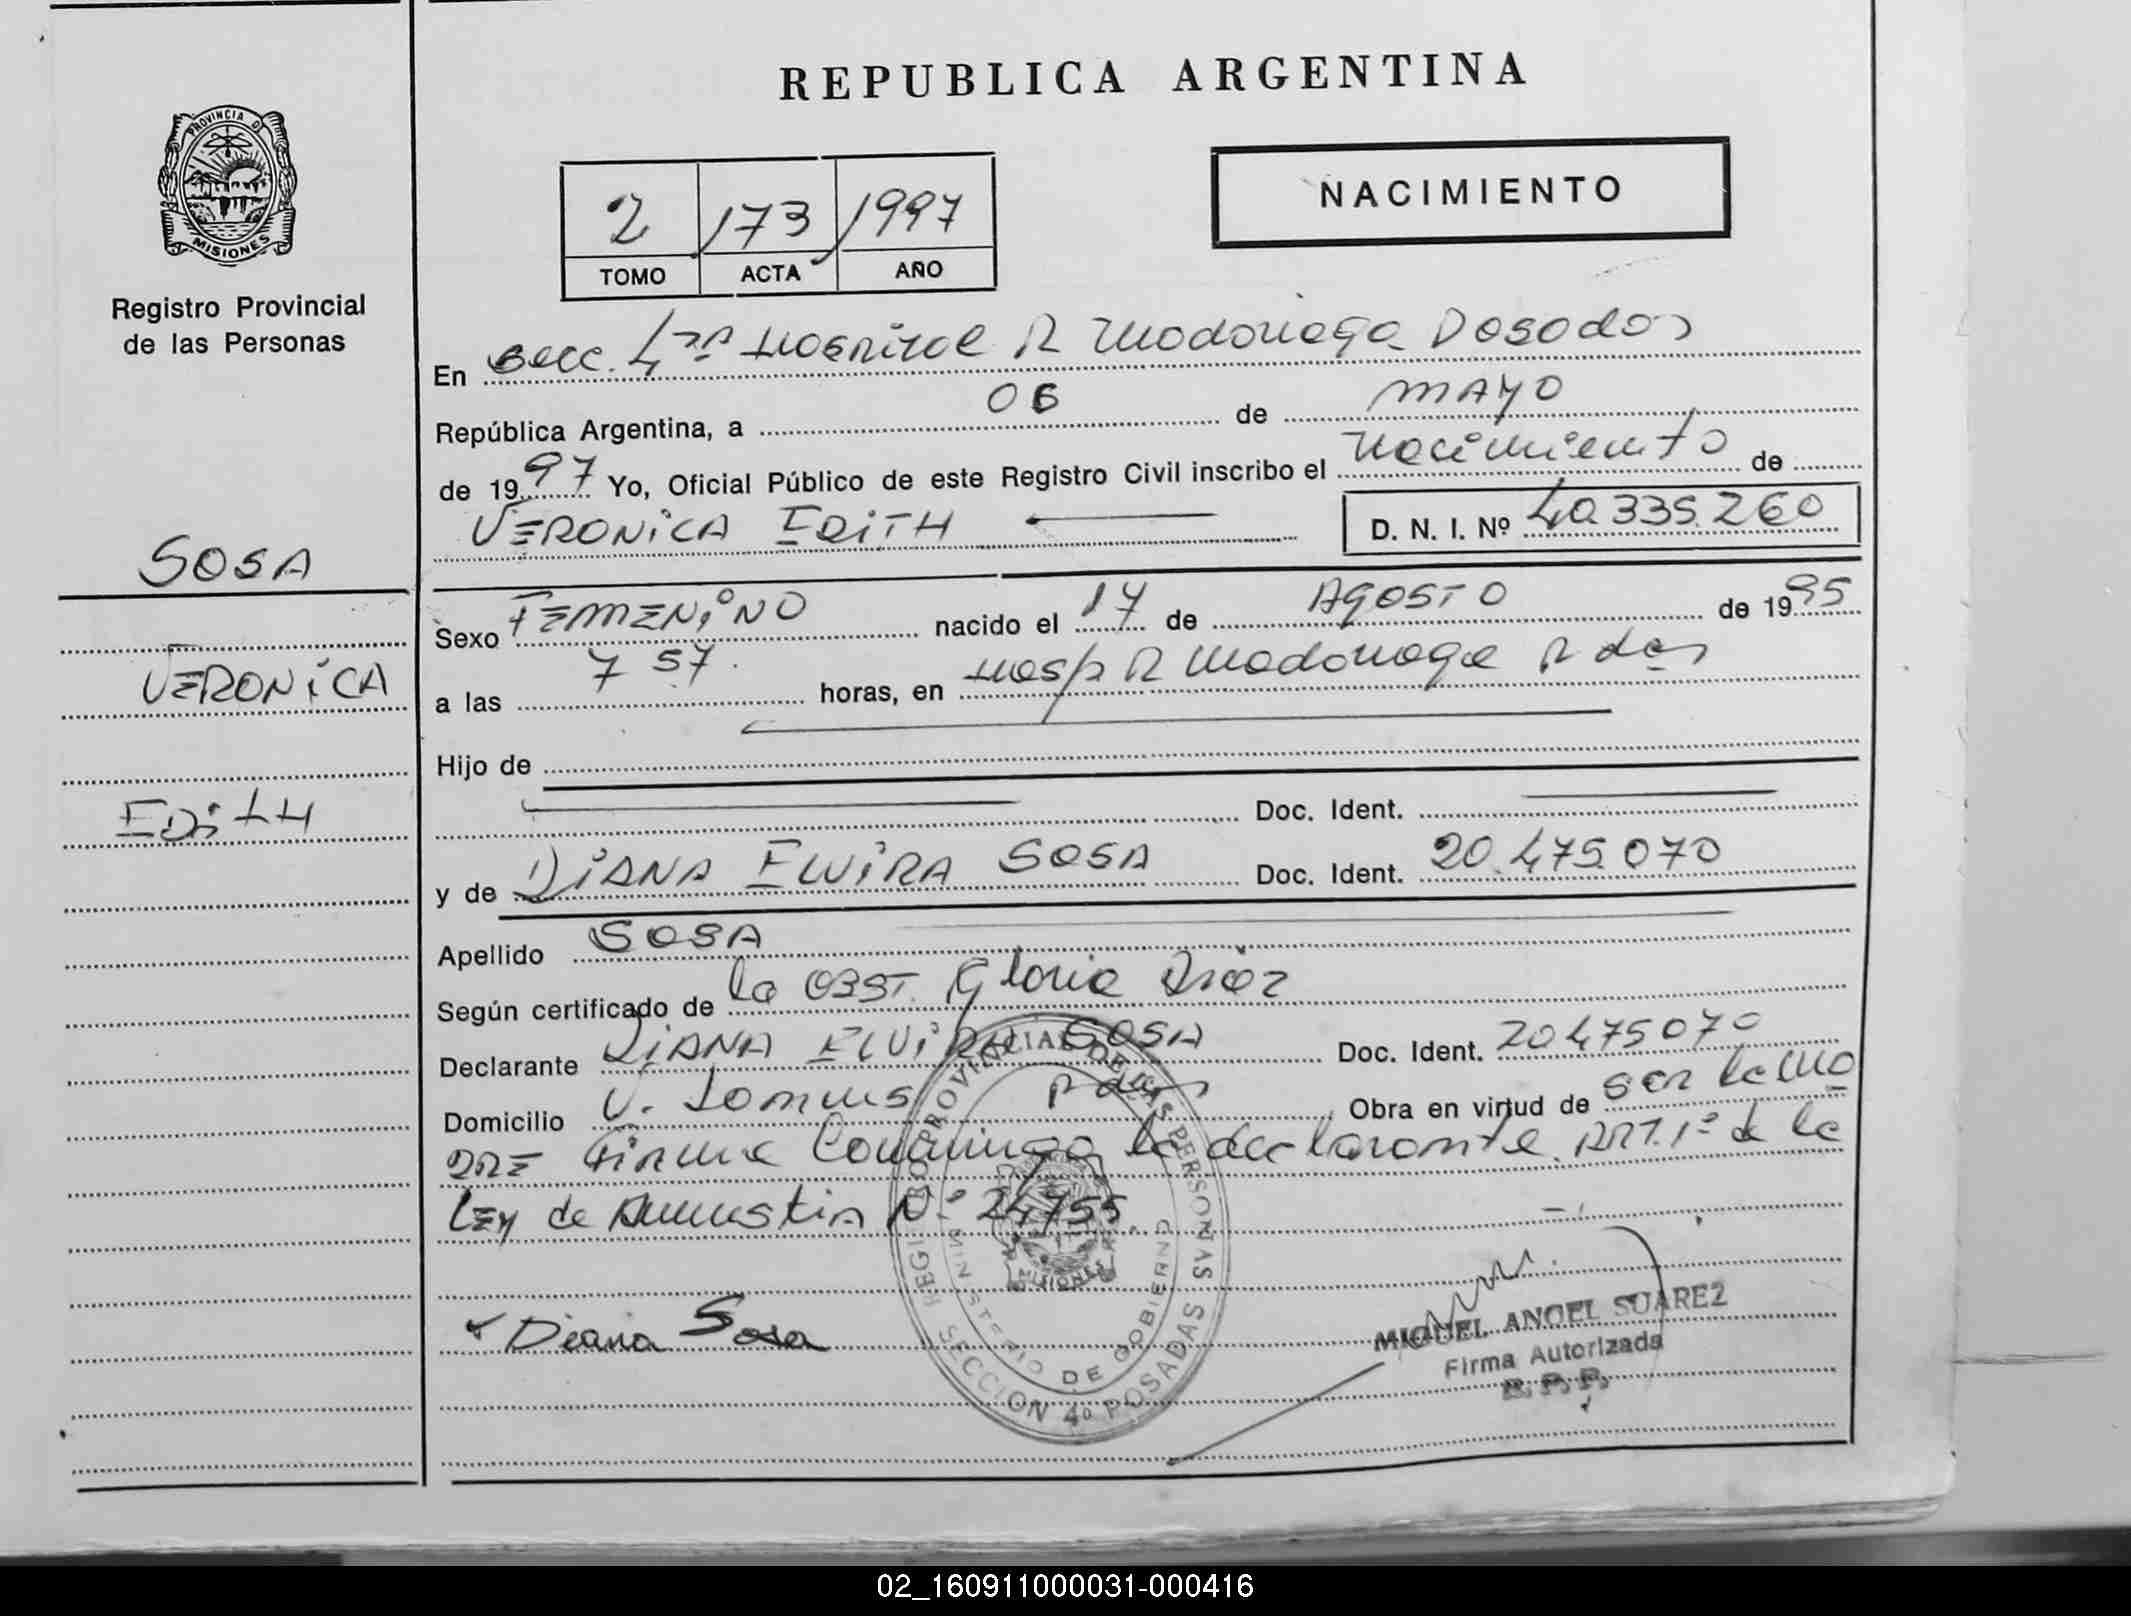 REPUBLICA ARGENTINA
PROVINCIA D
MISIONES
Registro Provincial
de las Personas
NACIMIENTO
2 173 1997
TOMO ACTA AÑO
En Secc. 4ta Hospital R Madariaga Posadas
República Argentina, a 06 de MAYO
de 1997 Yo, Oficial Público de este Registro Civil inscribo el Nacimiento de
VERONICA EDITH D. N. I. Nº 40.335.260
SOSA
VERONICA
EDITH
Sexo FEMENINO nacido el 14 de AGOSTO de 1995
a las 7 57. horas, en Hosp R Madariaga Pdas
Hijo de
Doc. Ident.
y de DIANA ELVIRA SOSA Doc. Ident. 20.475.070
Apellido SOSA
Según certificado de la OBST. Gloria Diaz
Declarante DIANA ELVIRA SOSA Doc. Ident. 20475070
Domicilio V. Pdas Obra en virtud de ser la MA
DRE Firma la declarante ART. 1º de la
LEY de Amnistia Nº 24755.
Diana Sosa
REGISTRO PROVINCIAL DE LAS PERSONAS
MINISTERIO DE GOBIERNO
MISIONES
SECCION 4º POSADAS
MIGUEL ANGEL SUAREZ
Firma Autorizada
R. P. P.
02_160911000031-000416